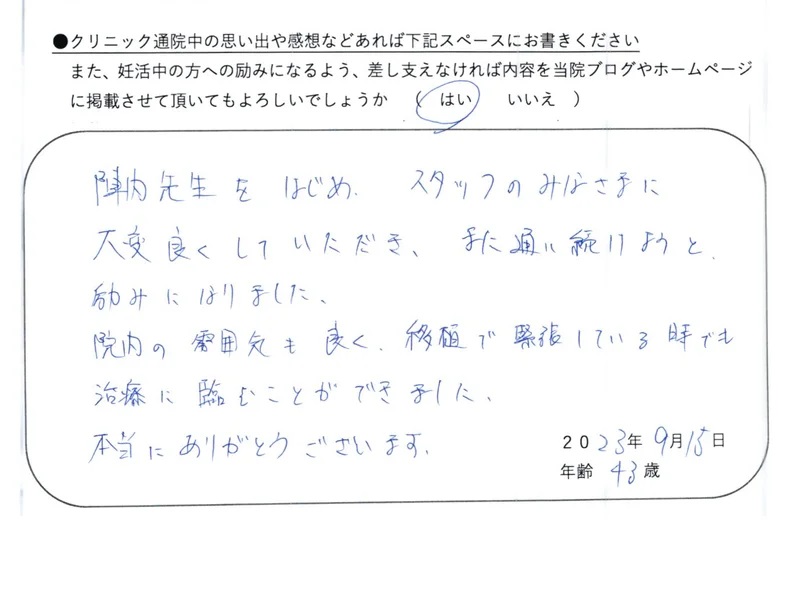 ●クリニック通院中の思い出や感想などあれば下記スペースにお書きください
また、妊活中の方への励みになるよう、差し支えなければ内容を当院ブログやホームページ
に掲載させて頂いてもよろしいでしょうか （ はい いいえ ）
陣内先生をはじめ、スタッフのみなさまに
大変良くしていただき、また通い続けようと、
励みになりました、
院内の雰囲気も良く、移植で緊張している時でも
治療に臨むことができました、
本当にありがとうございます。
2023年9月15日
年齢 43歳